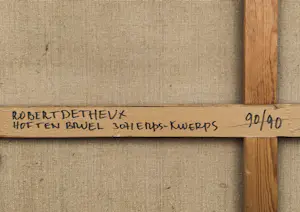 ROBERT DETHEUX
HOF TEN BRUEL 3071 ERPS-KWERPS
90/90